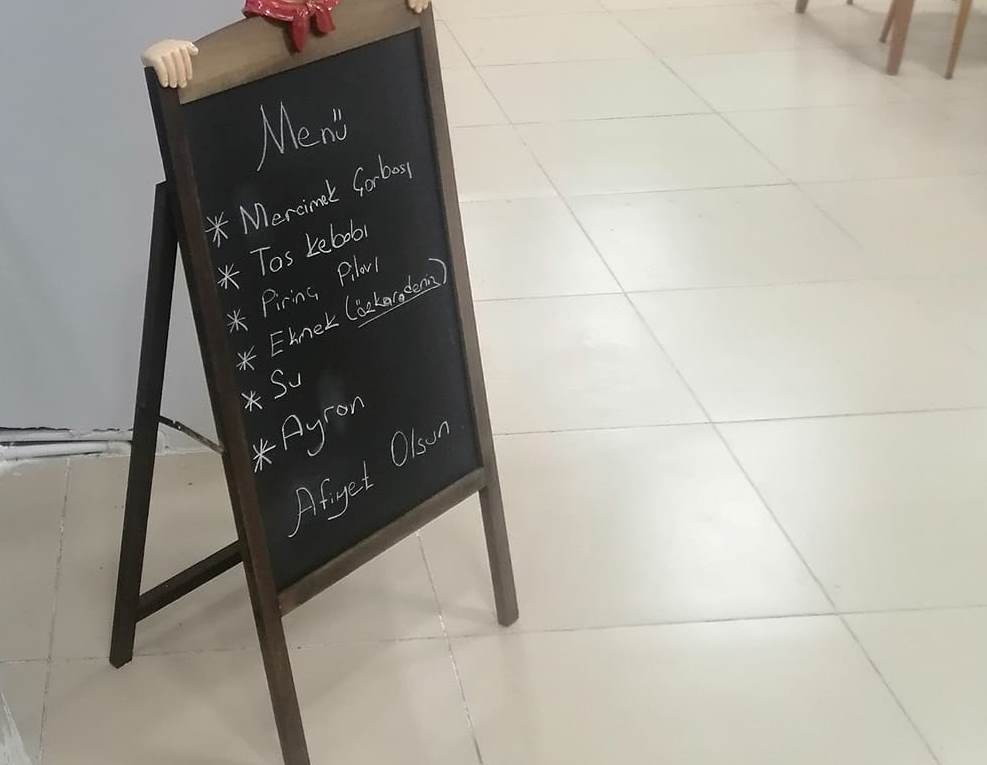 Menü
* Mercimek Çorbası
* Tas kebabı
* Pirinç Pilavı
* Ekmek (özkaradeniz)
* Su
* Ayran
Afiyet Olsun